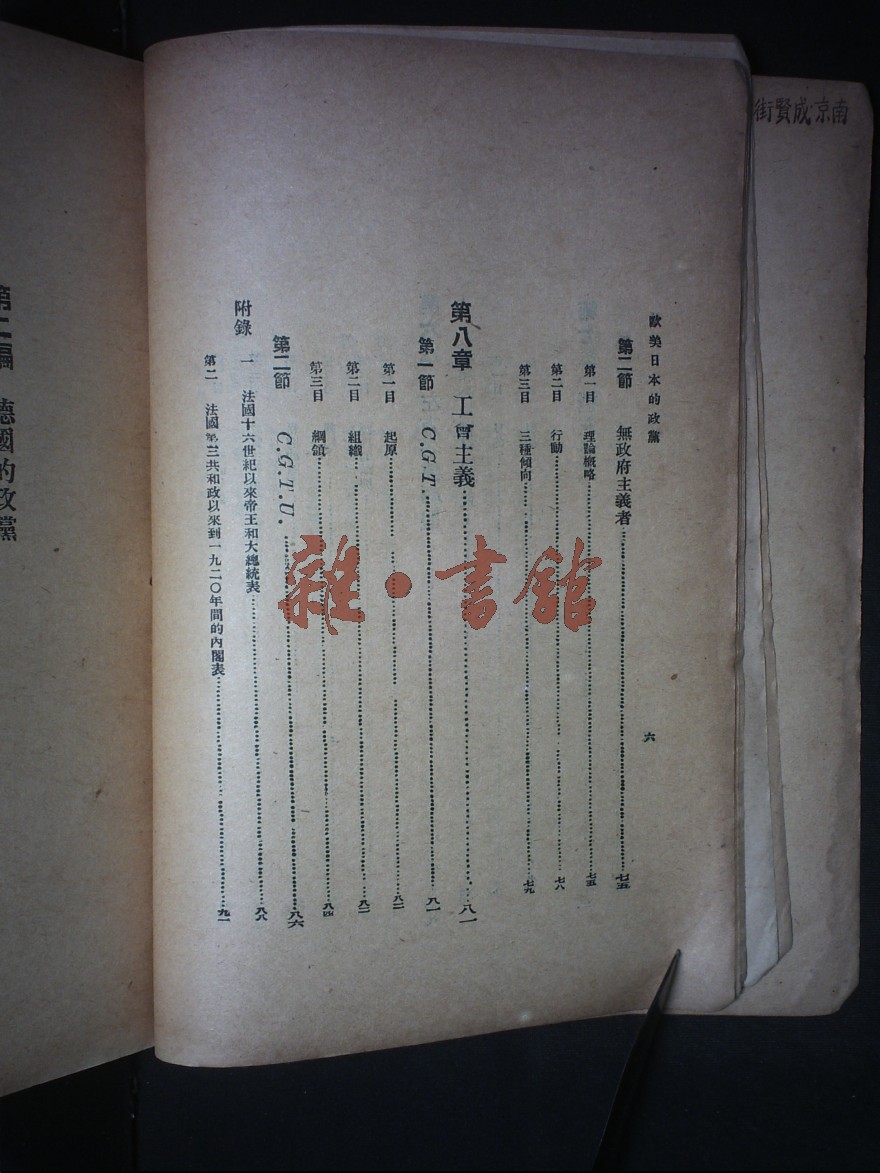 南京成賢街
歐美日本的政黨
六
第二節 無政府主義者 七五
第一目 理論概略 七五
第二目 行動 七八
第三目 三種傾向 七九
第八章 工會主義 八一
第一節 C.G.T. 八一
第一目 起原 八二
第二目 組織 八二
第三目 綱領 八四
第二節 C.G.T.U. 八六
附錄 一 法國十六世紀以來帝王和大總統表 八八
第二 法國第三共和政以來到一九二〇年間的內閣表 九一
第二編 德國的政黨
雜·書館